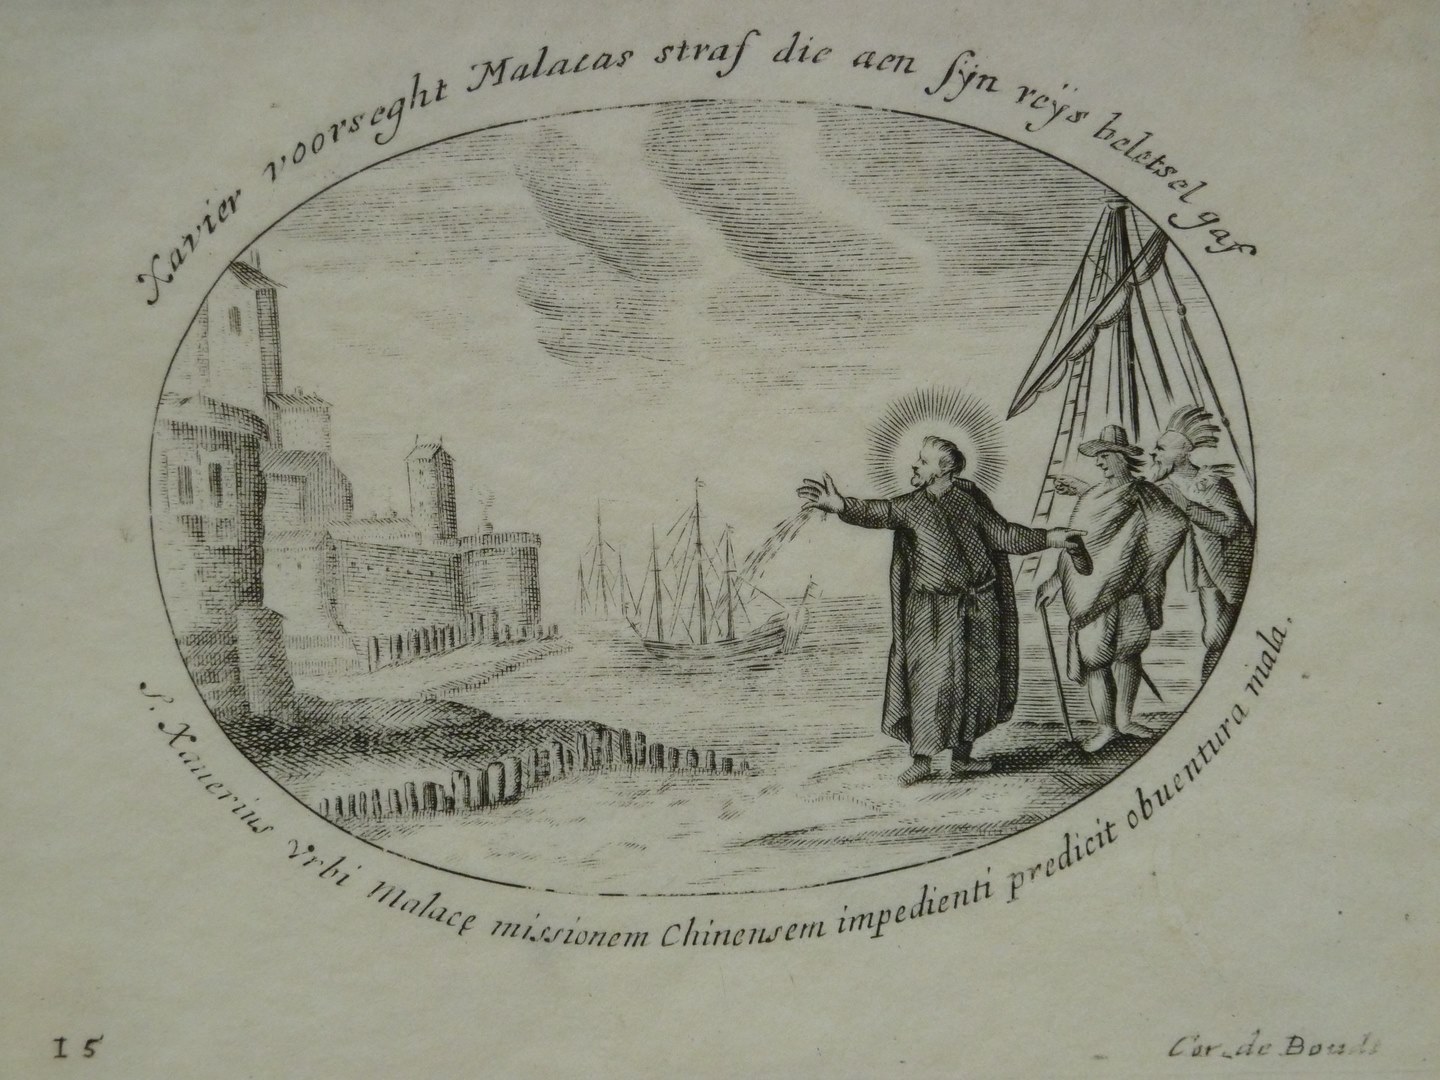 Xavier voorseght Malacas straf die aen sÿn reÿs beletsel gaf
S. Xauerius Vrbi Malacę missionem Chinensem impedienti predicit obuentura mala.
I 5
Cor. de Boudt